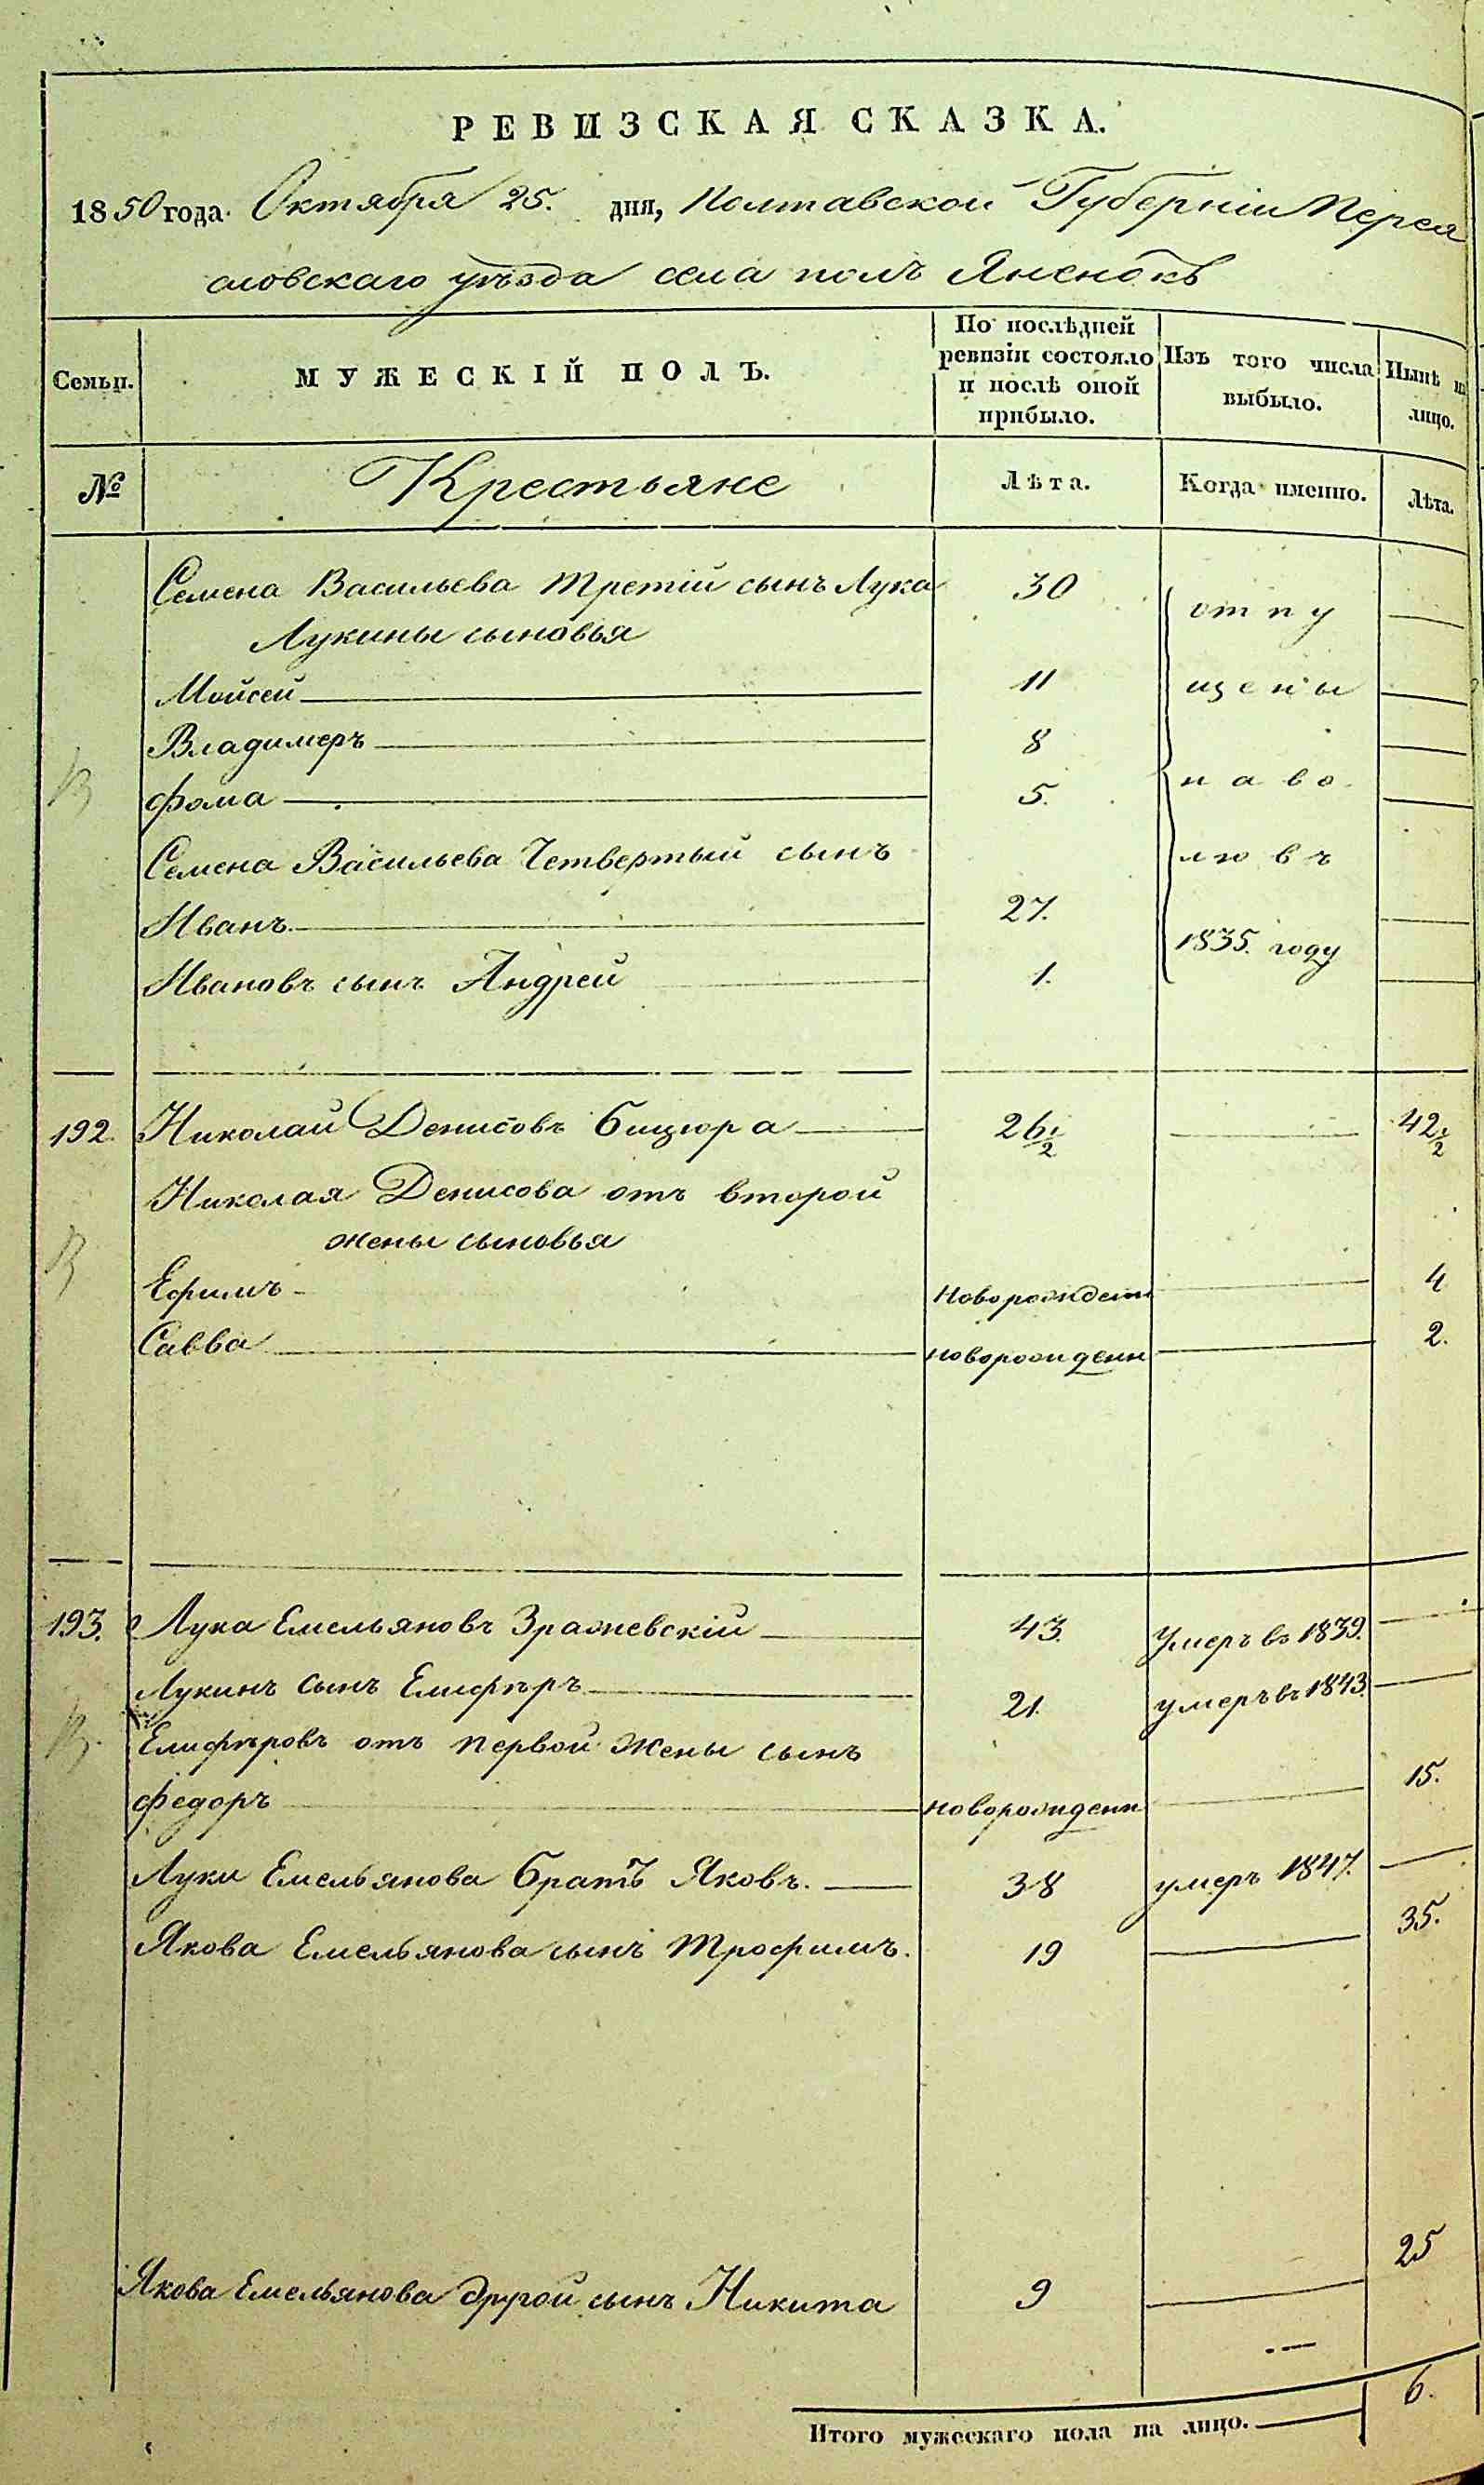 РЕВИЗСКАЯ СКАЗКА.
1850 года. Октября 25. дня, Полтавской Губерніи Перея
словскаго уѣзда села полъ Яненокъ
Семьи.
МУЖЕСКІЙ ПОЛЪ.
По послѣдней ревизіи состояло и послѣ оной прибыло.
Изъ того числа выбыло.
Нынѣ на лицо.
№ Крестьяне Лѣта. Когда именно. Лѣта.
Семена Васильева Третій сынъ Лука 30
Лукины сыновья
Мойсей 11
Владимеръ 8
Фома 5.
Семена Васильева Четвертый сынъ
Иванъ 27.
Ивановъ сынъ Андрей 1.
отпу
щены
на во
лю въ
1835. году
192. Николай Денисовъ Бицюра 26½ 42½
Николая Денисова отъ второй
жены сыновья
Ефимъ новорожденн 4
Савва новорожденн 2.
193. Лука Емельяновъ Зражевскій 43. Умеръ въ 1839.
Лукинъ сынъ Елифѣръ 21. умеръ въ 1843.
Елифѣровъ отъ первой жены сынъ
Федоръ новорожденн 15.
Луки Емельянова братъ Яковъ. 38 умеръ 1847.
Якова Емельянова сынъ Трофимъ. 19 35.
Якова Емельянова другой сынъ Никита 9 25
Итого мужескаго пола на лицо. 6.